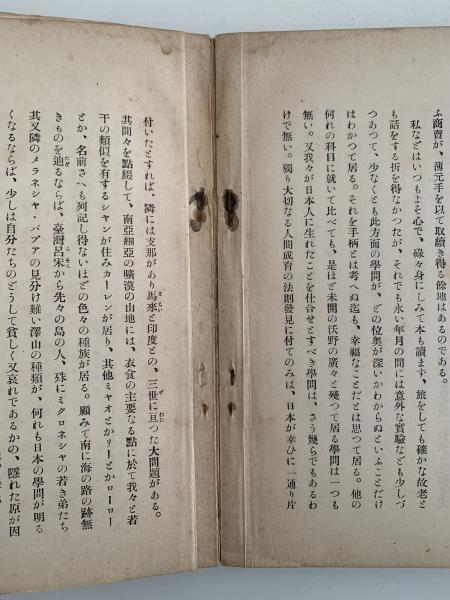 ふ商賣が、薄元手を以て取續き得る餘地はあるのである。
私などはいつもよそ心で、碌々身にしみて本も讀まず、旅をしても確かな故老と
も話をする折を得なかつたが、それでも永い年月の間には意外な實驗なども少しづ
つあつて、少なくとも此方面の學問が、どの位奥が深いかわからぬといふことだけ
はわかつて居る。それを手柄とは考へぬ迄も、幸福なことだとは思つて居る。他の
何れの科目に就いて比べても、是ほど未開の沃野の廣々と殘つて居る學問は一つも
無い。又我々が日本人に生れたことを仕合せとすべき學問は、さう幾らでもあるわ
けで無い。獨り大切なる人間成育の法則發見に付てのみは、日本が幸ひに一通り片
付いたとすれば、隣には支那があり馬來と印度との、三世に亘つた大問題がある。
其間々を點綴して、南亞細亞の曠漠の山地には、衣食の主要なる點に於て我々と若
干の類似を有するシャンが住みカーレンが居り、其他ミャオとかリーとかローロー
とか、名前さへも列記し得ないほどの色々の種族が居る。顧みて南に海の路の跡無
きものを辿るならば、臺灣呂宋から先々の島の人、殊にミクロネシャの若き弟たち
其又隣のメラネシャ・パプアの見分け難い澤山の種類が、何れも日本の學問が明る
くなるならば、少しは自分たちのどうして貧しく又哀れであるかの、隱れた原が因